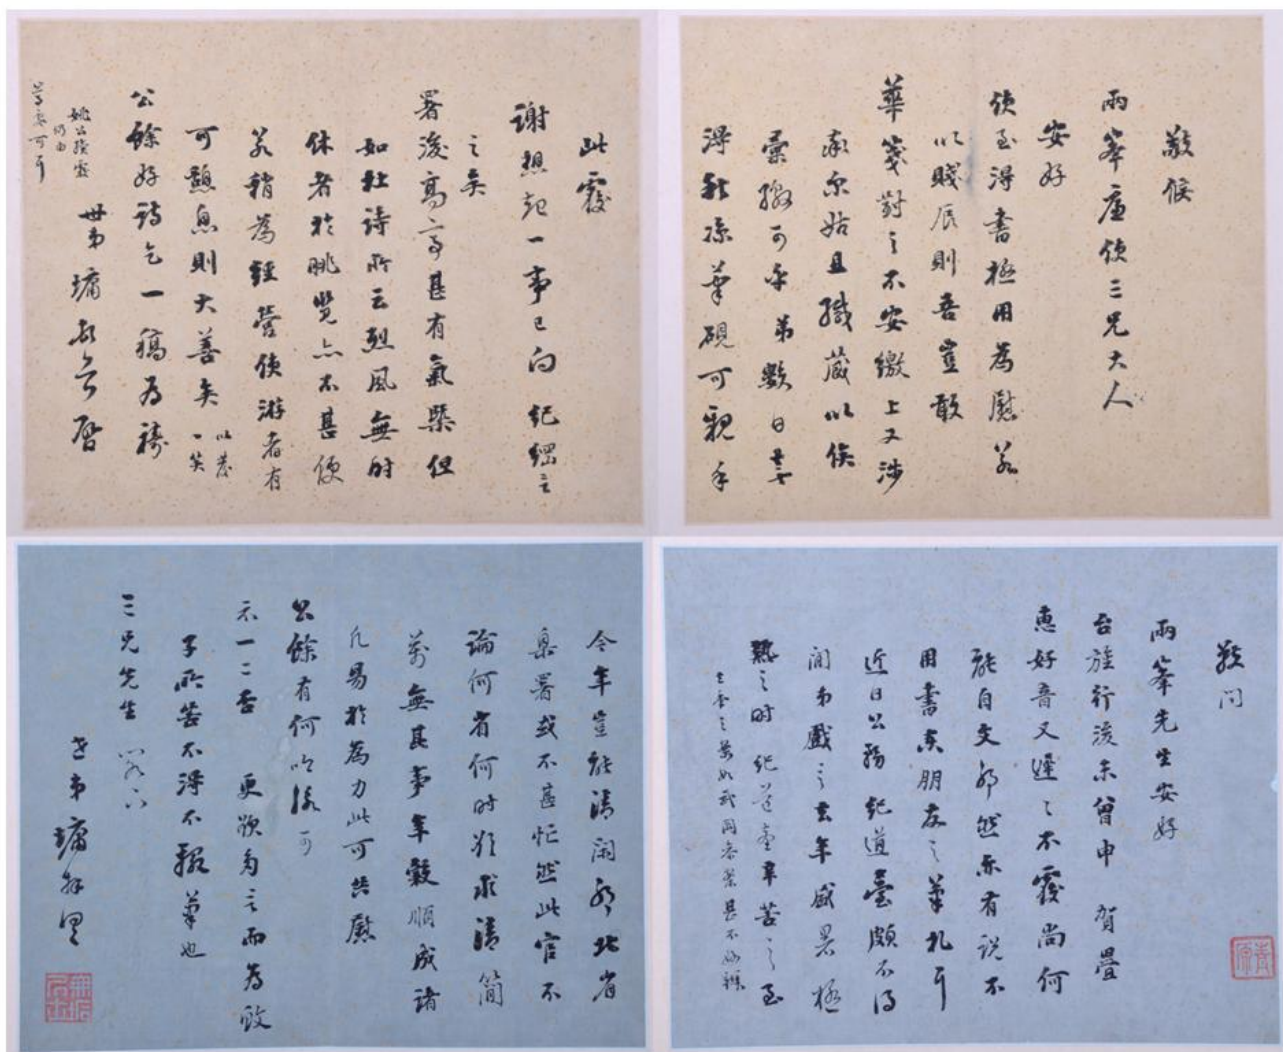 敬候
兩峯廉使三兄大人
安好
使至得書極用為慰若
以賤辰則吾豈敢
華箋對之不安繳上又涉
且緘藏以俟
可乎弟數日
得 筆硯可親手
此覆
謝想起一事已向 紀綱言
之矣
署後高亭甚有氣槩但
如杜詩所云烈風無時
休者於眺覽亦不甚便
若稍為經營使游者有
可憩息則大善矣 以發
一笑
公餘好詩乞一稿為禱
世弟墉 啓
敬問
兩峯先生安好
台旌行後未曾申 賀疊
惠好音又遲遲不覆尚何
能自文邪然亦有說不
用書柬朋友之筆札耳
近日公務 紀道臺頗不得
閒弟戲之去年盛暑極
熱之時 紀道臺辛苦之至
今年豈能清閑邪北省
臬署或不甚忙然此官不
論何省何時欲求清簡
萬無其事年穀順成諸
凡易於為力此可共慰
公餘有何吟詠可
示一二否 更欲多言而為
子所苦不得不輟筆也
三兄先生 閣下
世弟墉拜具